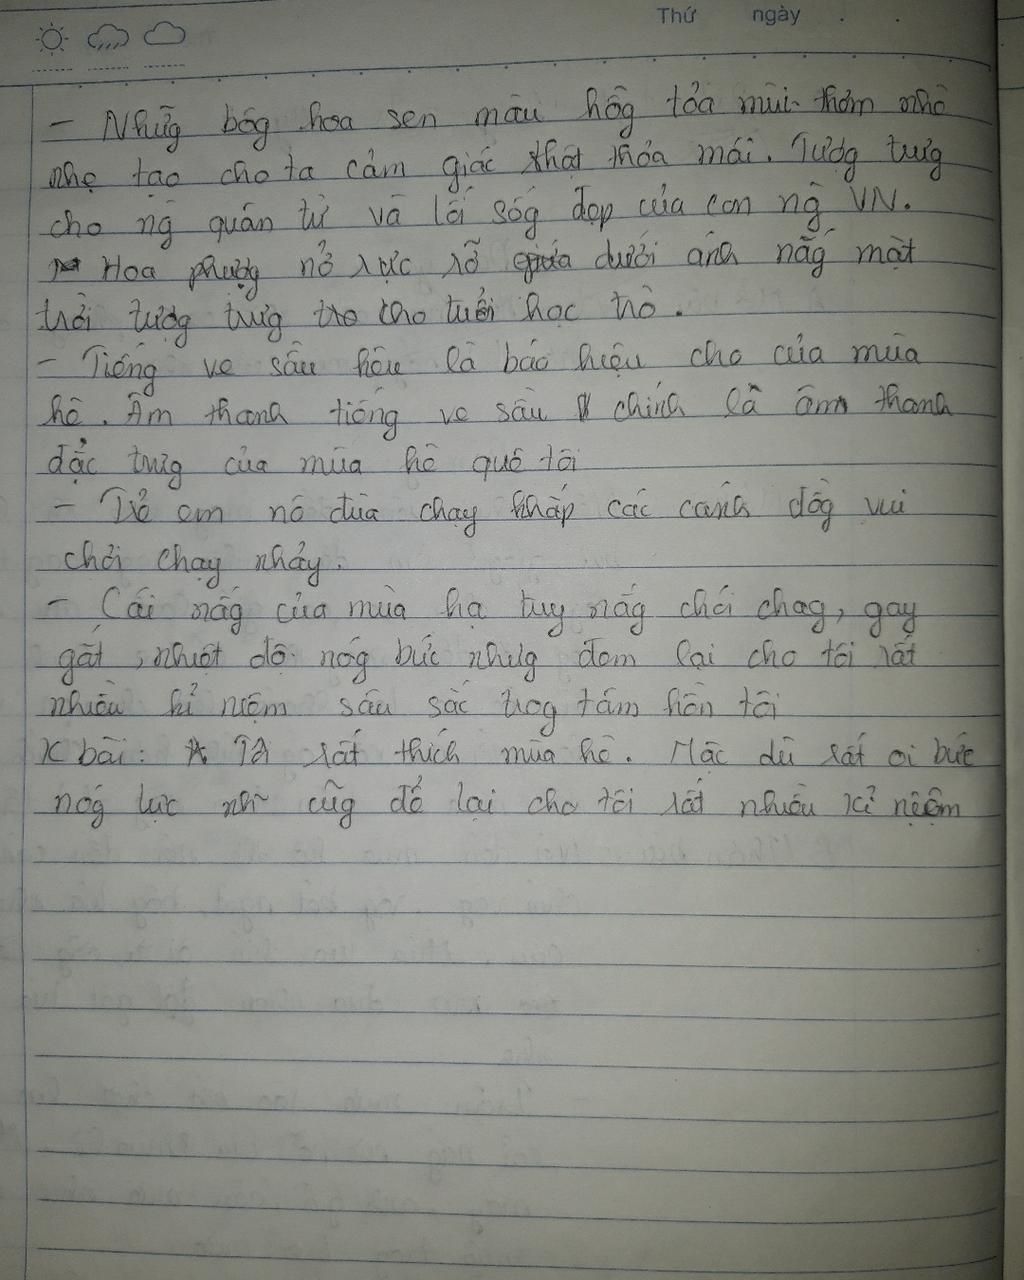 Thứ ngày . .
- Nhữg bôg hoa sen màu hồg tỏa mùi thơm nhè
nhẹ tạo cho ta cảm giác thật thỏa mái. Tượg trưg
cho ng quân tử và lối sốg đẹp của con ng VN.
- Hoa phượg nở rực rỡ dưới ánh nắg mặt
trời tượg trưg cho tuổi học trò.
- Tiếng ve sầu kêu là báo hiệu cho của mùa
hè. Âm thanh tiếng ve sầu chính là âm thanh
đặc trưg của mùa hè quê tôi
- Trẻ em nô đùa chạy khắp các cánh đồg vui
chơi chạy nhảy.
- Cái nắg của mùa hạ tuy nắg chói chag, gay
gắt, nhiệt độ nóg bức nhưg đem lại cho tôi rất
nhiều kỉ niệm sâu sắc trog tâm hồn tôi
K bài: Tôi rất thích mùa hè. Mặc dù rất oi bức
nóg lực cũg để lại cho tôi rất nhiều kỉ niệm